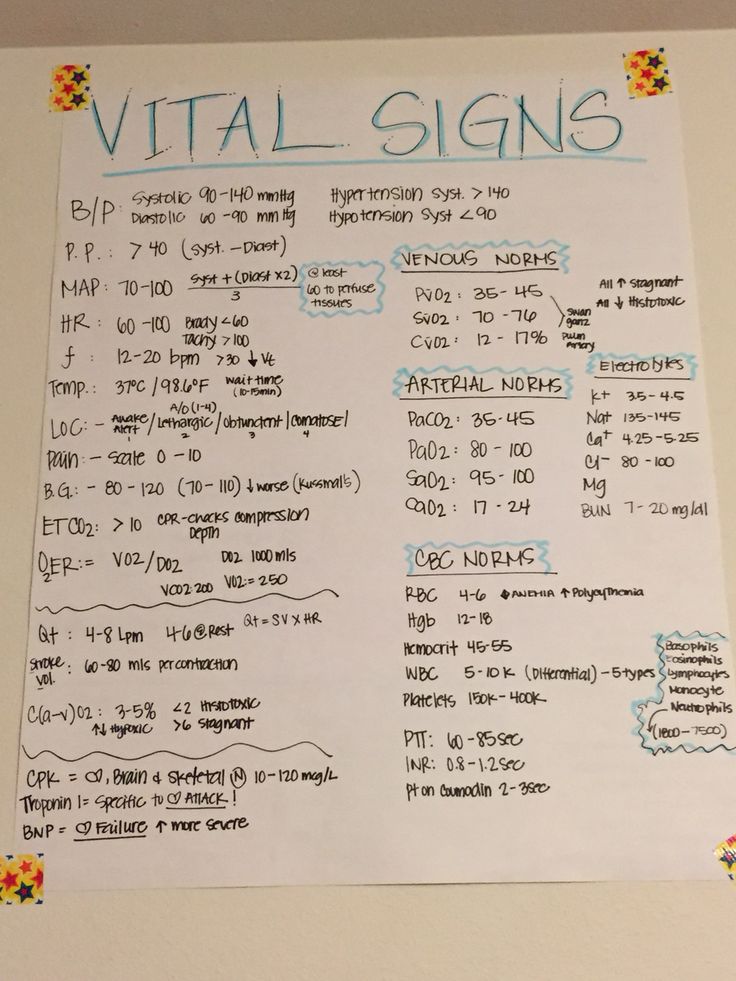 VITAL SIGNS
B/P: Systolic 90-140 mmHg Hypertension syst. > 140
Diastolic 60-90 mmHg Hypotension Syst < 90
P.P.: > 40 (Syst. - Diast)
MAP: 70-100 Syst + (Diast x2) / 3
@ least
60 to perfuse
tissues
HR: 60-100 Brady < 60
Tachy > 100
f: 12-20 bpm > 30 ↓ Vt
Temp.: 37°C / 98.6°F wait time
(10-15min)
A/O (1-4)
LOC: - Awake Alert / Lethargic / Obtundent / Comatose /
1 2 3 4
Pain: - Scale 0 - 10
B.G: - 80 - 120 (70-110) ↓ worse (Kussmal's)
ETCO2: > 10 CPR-checks compression
Depth
O2ER: = VO2 / DO2 DO2 1000 mls
VCO2: 200 VO2: = 250
Qt: 4-8 Lpm 4-6 @ Rest Qt = SV X HR
Stroke
Vol. : 60-80 mls per contraction
C(a-v)O2: 3-5% <2 Histotoxic
↑↓ Hypoxic >6 Stagnant
CPK = ♡, Brain & Skeletal Ⓝ 10-120 mcg/L
Troponin I = Specific to ♡ ATTACK!
BNP = ♡ Failure ↑ more severe
VENOUS NORMS
All ↑ Stagnant
All ↓ Histotoxic
Pv̄O2: 35-45
Sv̄O2: 70-76
Cv̄O2: 12-17%
Swan
ganz
Pulm
Artery
ARTERIAL NORMS
PaCO2: 35-45
PaO2: 80 - 100
SaO2: 95 - 100
CaO2: 17 - 24
Electrolytes
K+ 3.5 - 4.5
Na+ 135-145
Ca+ 4.25-5.25
Cl- 80 - 100
Mg
BUN 7-20 mg/dl
CBC NORMS
RBC 4-6 ↓ ANEMIA ↑ Polycythemia
Hgb 12-18
Hemocrit 45-55
WBC 5-10K (Differential) - 5 types
Platelets 150K - 400K
Basophils
Eosinophils
Lymphocytes
Monocyte
Neutrophils
(1800-7500)
PTT: 60-85 sec
INR: 0.8-1.2 sec
Pt on Coumadin 2-3 sec